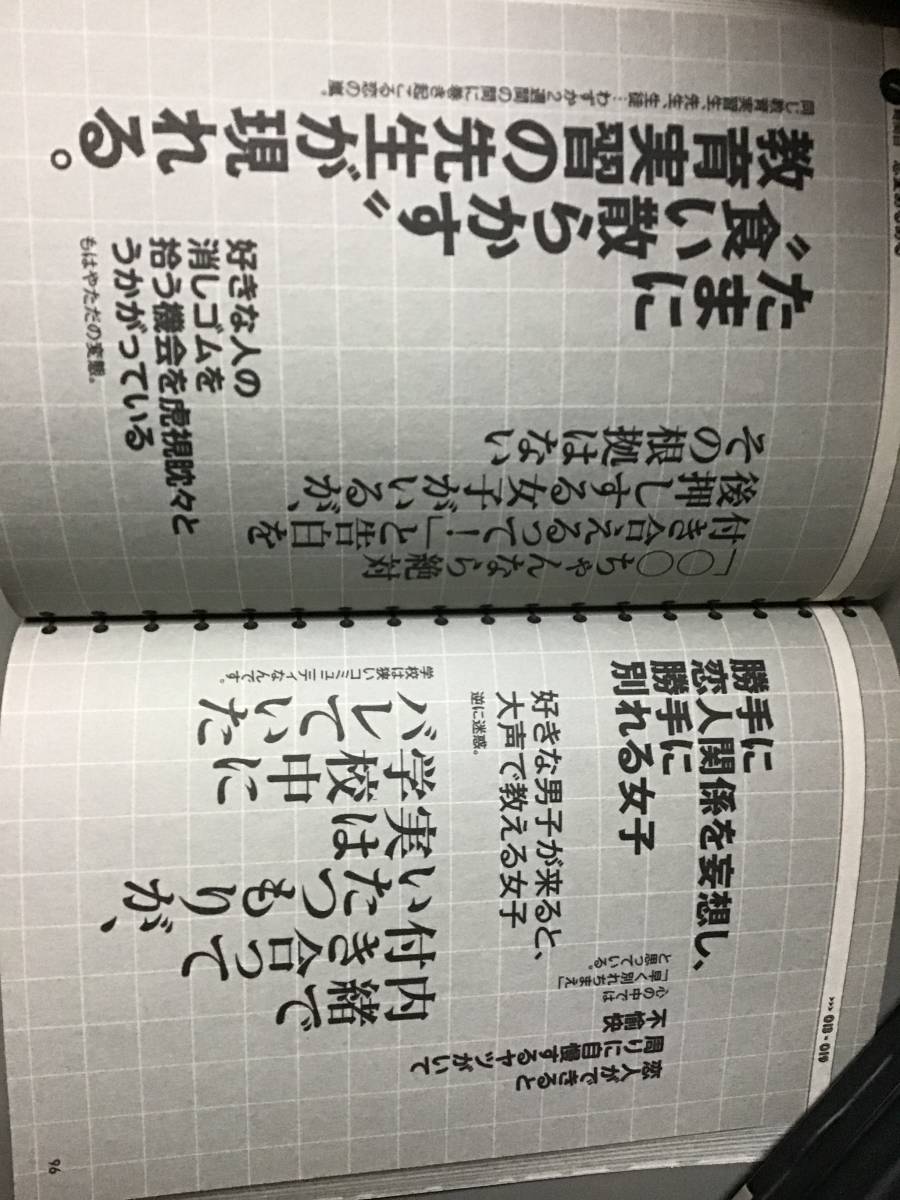 >>> 018 - 019
恋人ができると
周りに自慢するヤツがいて
不愉快
心の中では
「早く別れちまえ」
と思っている。
勝手に
恋人関係を妄想し、
勝手に
別れる女子
好きな男子が来ると、
大声で教える女子
逆に迷惑。
内緒で
付き合って
いたつもりが、
実は
学校中に
バレていた
学校は狭いコミュニティなんです。
96
「○○ちゃんなら絶対
付き合えるって！」と告白を
後押しする女子がいるが、
その根拠はない
たまに
〝食い散らかす〟
教育実習の先生が現れる。
同じ教育実習生、先生、生徒…わずか2週間の間に巻き起こる恋の嵐。
好きな人の
消しゴムを
拾う機会を虎視眈々と
うかがっている
もはやただの変態。